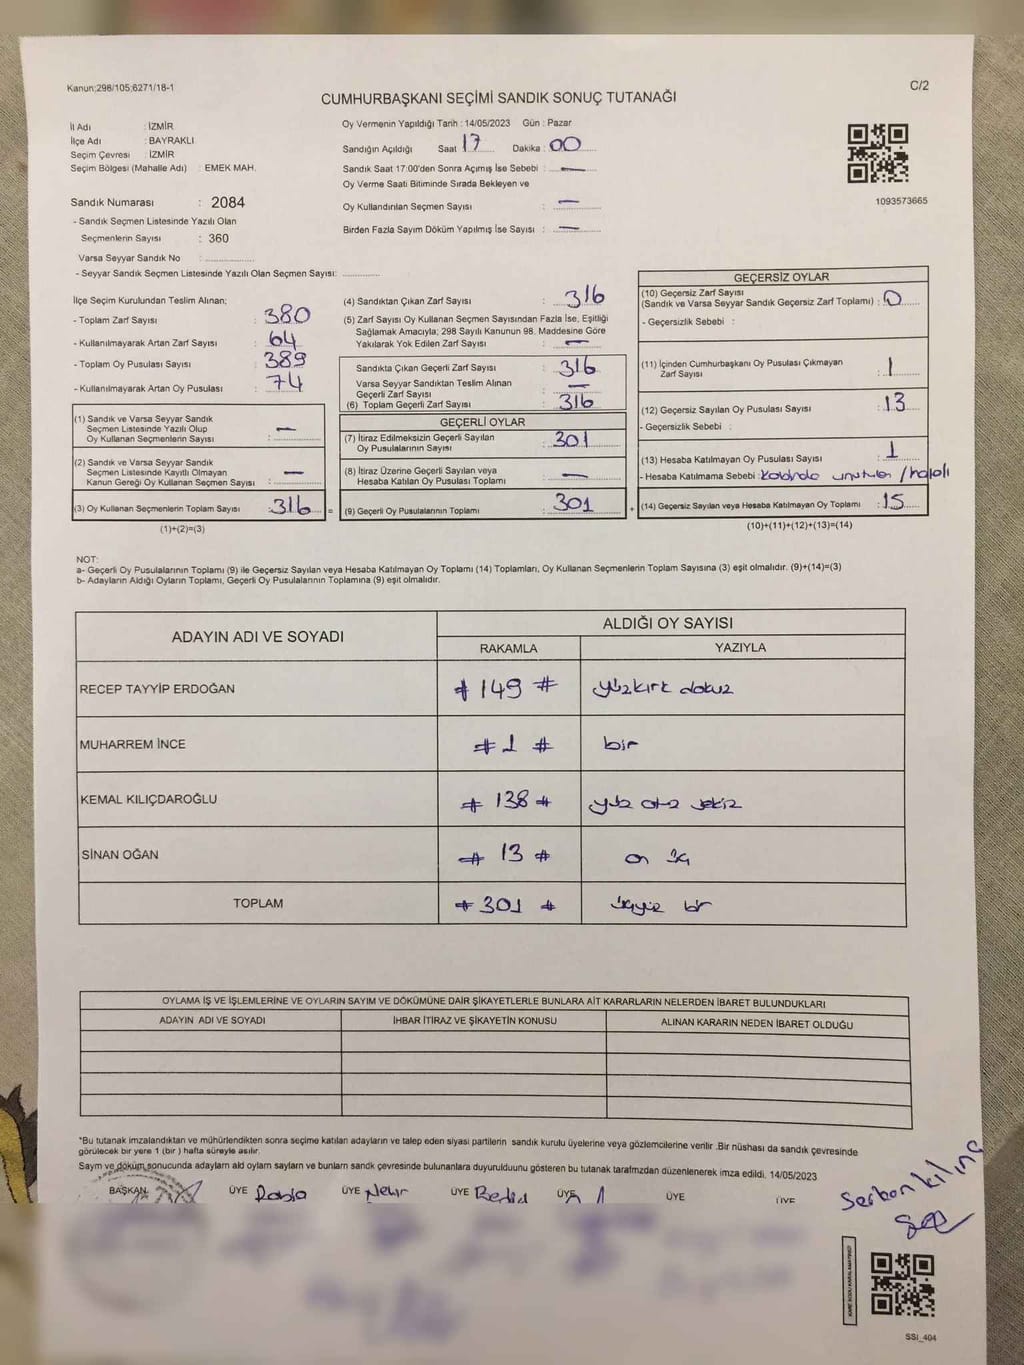 Kanun;298/105;6271/18-1
C/2
CUMHURBAŞKANI SEÇİMİ SANDIK SONUÇ TUTANAĞI
İl Adı : İZMİR
İlçe Adı : BAYRAKLI
Seçim Çevresi : İZMİR
Seçim Bölgesi (Mahalle Adı) : EMEK MAH.
Sandık Numarası : 2084
- Sandık Seçmen Listesinde Yazılı Olan
Seçmenlerin Sayısı : 360
Varsa Seyyar Sandık No :
- Seyyar Sandık Seçmen Listesinde Yazılı Olan Seçmen Sayısı:
Oy Vermenin Yapıldığı Tarih : 14/05/2023 Gün : Pazar
Sandığın Açıldığı Saat 17 Dakika : 00
Sandık Saat 17:00'den Sonra Açımış İse Sebebi : —
Oy Verme Saati Bitiminde Sırada Bekleyen ve
Oy Kullandırılan Seçmen Sayısı : —
Birden Fazla Sayım Döküm Yapılmış İse Sayısı : —
1093573665
İlçe Seçim Kurulundan Teslim Alınan;
- Toplam Zarf Sayısı : 380
- Kullanılmayarak Artan Zarf Sayısı : 64
- Toplam Oy Pusulası Sayısı : 389
- Kullanılmayarak Artan Oy Pusulası : 74
(1) Sandık ve Varsa Seyyar Sandık
Seçmen Listesinde Yazılı Olup
Oy Kullanan Seçmenlerin Sayısı : —
(2) Sandık ve Varsa Seyyar Sandık
Seçmen Listesinde Kayıtlı Olmayan
Kanun Gereği Oy Kullanan Seçmen Sayısı : —
(3) Oy Kullanan Seçmenlerin Toplam Sayısı : 316 =
(1)+(2)=(3)
(4) Sandıktan Çıkan Zarf Sayısı : 316
(5) Zarf Sayısı Oy Kullanan Seçmen Sayısından Fazla İse, Eşitliği
Sağlamak Amacıyla; 298 Sayılı Kanunun 98. Maddesine Göre
Yakılarak Yok Edilen Zarf Sayısı : —
Sandıkta Çıkan Geçerli Zarf Sayısı : 316
Varsa Seyyar Sandıktan Teslim Alınan
Geçerli Zarf Sayısı : —
(6) Toplam Geçerli Zarf Sayısı : 316
GEÇERLİ OYLAR
(7) İtiraz Edilmeksizin Geçerli Sayılan
Oy Pusulalarının Sayısı : 301
(8) İtiraz Üzerine Geçerli Sayılan veya
Hesaba Katılan Oy Pusulası Toplamı : —
(9) Geçerli Oy Pusulalarının Toplamı : 301 +
GEÇERSİZ OYLAR
(10) Geçersiz Zarf Sayısı
(Sandık ve Varsa Seyyar Sandık Geçersiz Zarf Toplamı) : 0
- Geçersizlik Sebebi :
(11) İçinden Cumhurbaşkanı Oy Pusulası Çıkmayan
Zarf Sayısı : 1
(12) Geçersiz Sayılan Oy Pusulası Sayısı : 13
- Geçersizlik Sebebi :
(13) Hesaba Katılmayan Oy Pusulası Sayısı : 1
- Hesaba Katılmama Sebebi :
(14) Geçersiz Sayılan veya Hesaba Katılmayan Oy Toplamı : 15
(10)+(11)+(12)+(13)=(14)
NOT:
a- Geçerli Oy Pusulalarının Toplamı (9) ile Geçersiz Sayılan veya Hesaba Katılmayan Oy Toplamı (14) Toplamları, Oy Kullanan Seçmenlerin Toplam Sayısına (3) eşit olmalıdır. (9)+(14)=(3)
b- Adayların Aldığı Oyların Toplamı, Geçerli Oy Pusulalarının Toplamına (9) eşit olmalıdır.
ADAYIN ADI VE SOYADI
ALDIĞI OY SAYISI
RAKAMLA YAZIYLA
RECEP TAYYİP ERDOĞAN # 149 # yüzkırk dokuz
MUHARREM İNCE # 1 # bir
KEMAL KILIÇDAROĞLU # 138 # yüz otuz sekiz
SİNAN OĞAN # 13 # on üç
TOPLAM # 301 # üçyüz bir
OYLAMA İŞ VE İŞLEMLERİNE VE OYLARIN SAYIM VE DÖKÜMÜNE DAİR ŞİKAYETLERLE BUNLARA AİT KARARLARIN NELERDEN İBARET BULUNDUKLARI
ADAYIN ADI VE SOYADI İHBAR İTİRAZ VE ŞİKAYETİN KONUSU ALINAN KARARIN NEDEN İBARET OLDUĞU
*Bu tutanak imzalandıktan ve mühürlendikten sonra seçime katılan adayların ve talep eden siyasi partilerin sandık kurulu üyelerine veya gözlemcilerine verilir .Bir nüshası da sandık çevresinde
görülecek bir yere 1 (bir ) hafta süreyle asılır.
Sayım ve döküm sonucunda adayların ald oyların saylarn ve bunların sandk çevresinde bulunanlara duyurulduunu gösteren bu tutanak tarafmzdan düzenlenerek imza edildi. 14/05/2023
BAŞKAN ÜYE Rabia ÜYE Nehir ÜYE ÜYE ÜYE ÜYE
KARE KODU KARALAMAYINIZ!
SSi_404